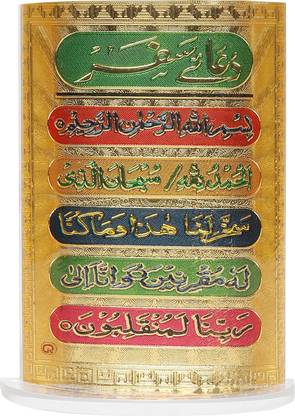 دُعائے سفر
بِسْمِ اللهِ الرَّحْمٰنِ الرَّحِيْمِ
اَلْحَمْدُ لِلّٰهِ / سُبْحَانَ الَّذِىْ
سَخَّرَ لَنَا هٰذَا وَمَا كُنَّا
لَهٗ مُقْرِنِيْنَ وَاِنَّا اِلٰى
رَبِّنَا لَمُنْقَلِبُوْنَ